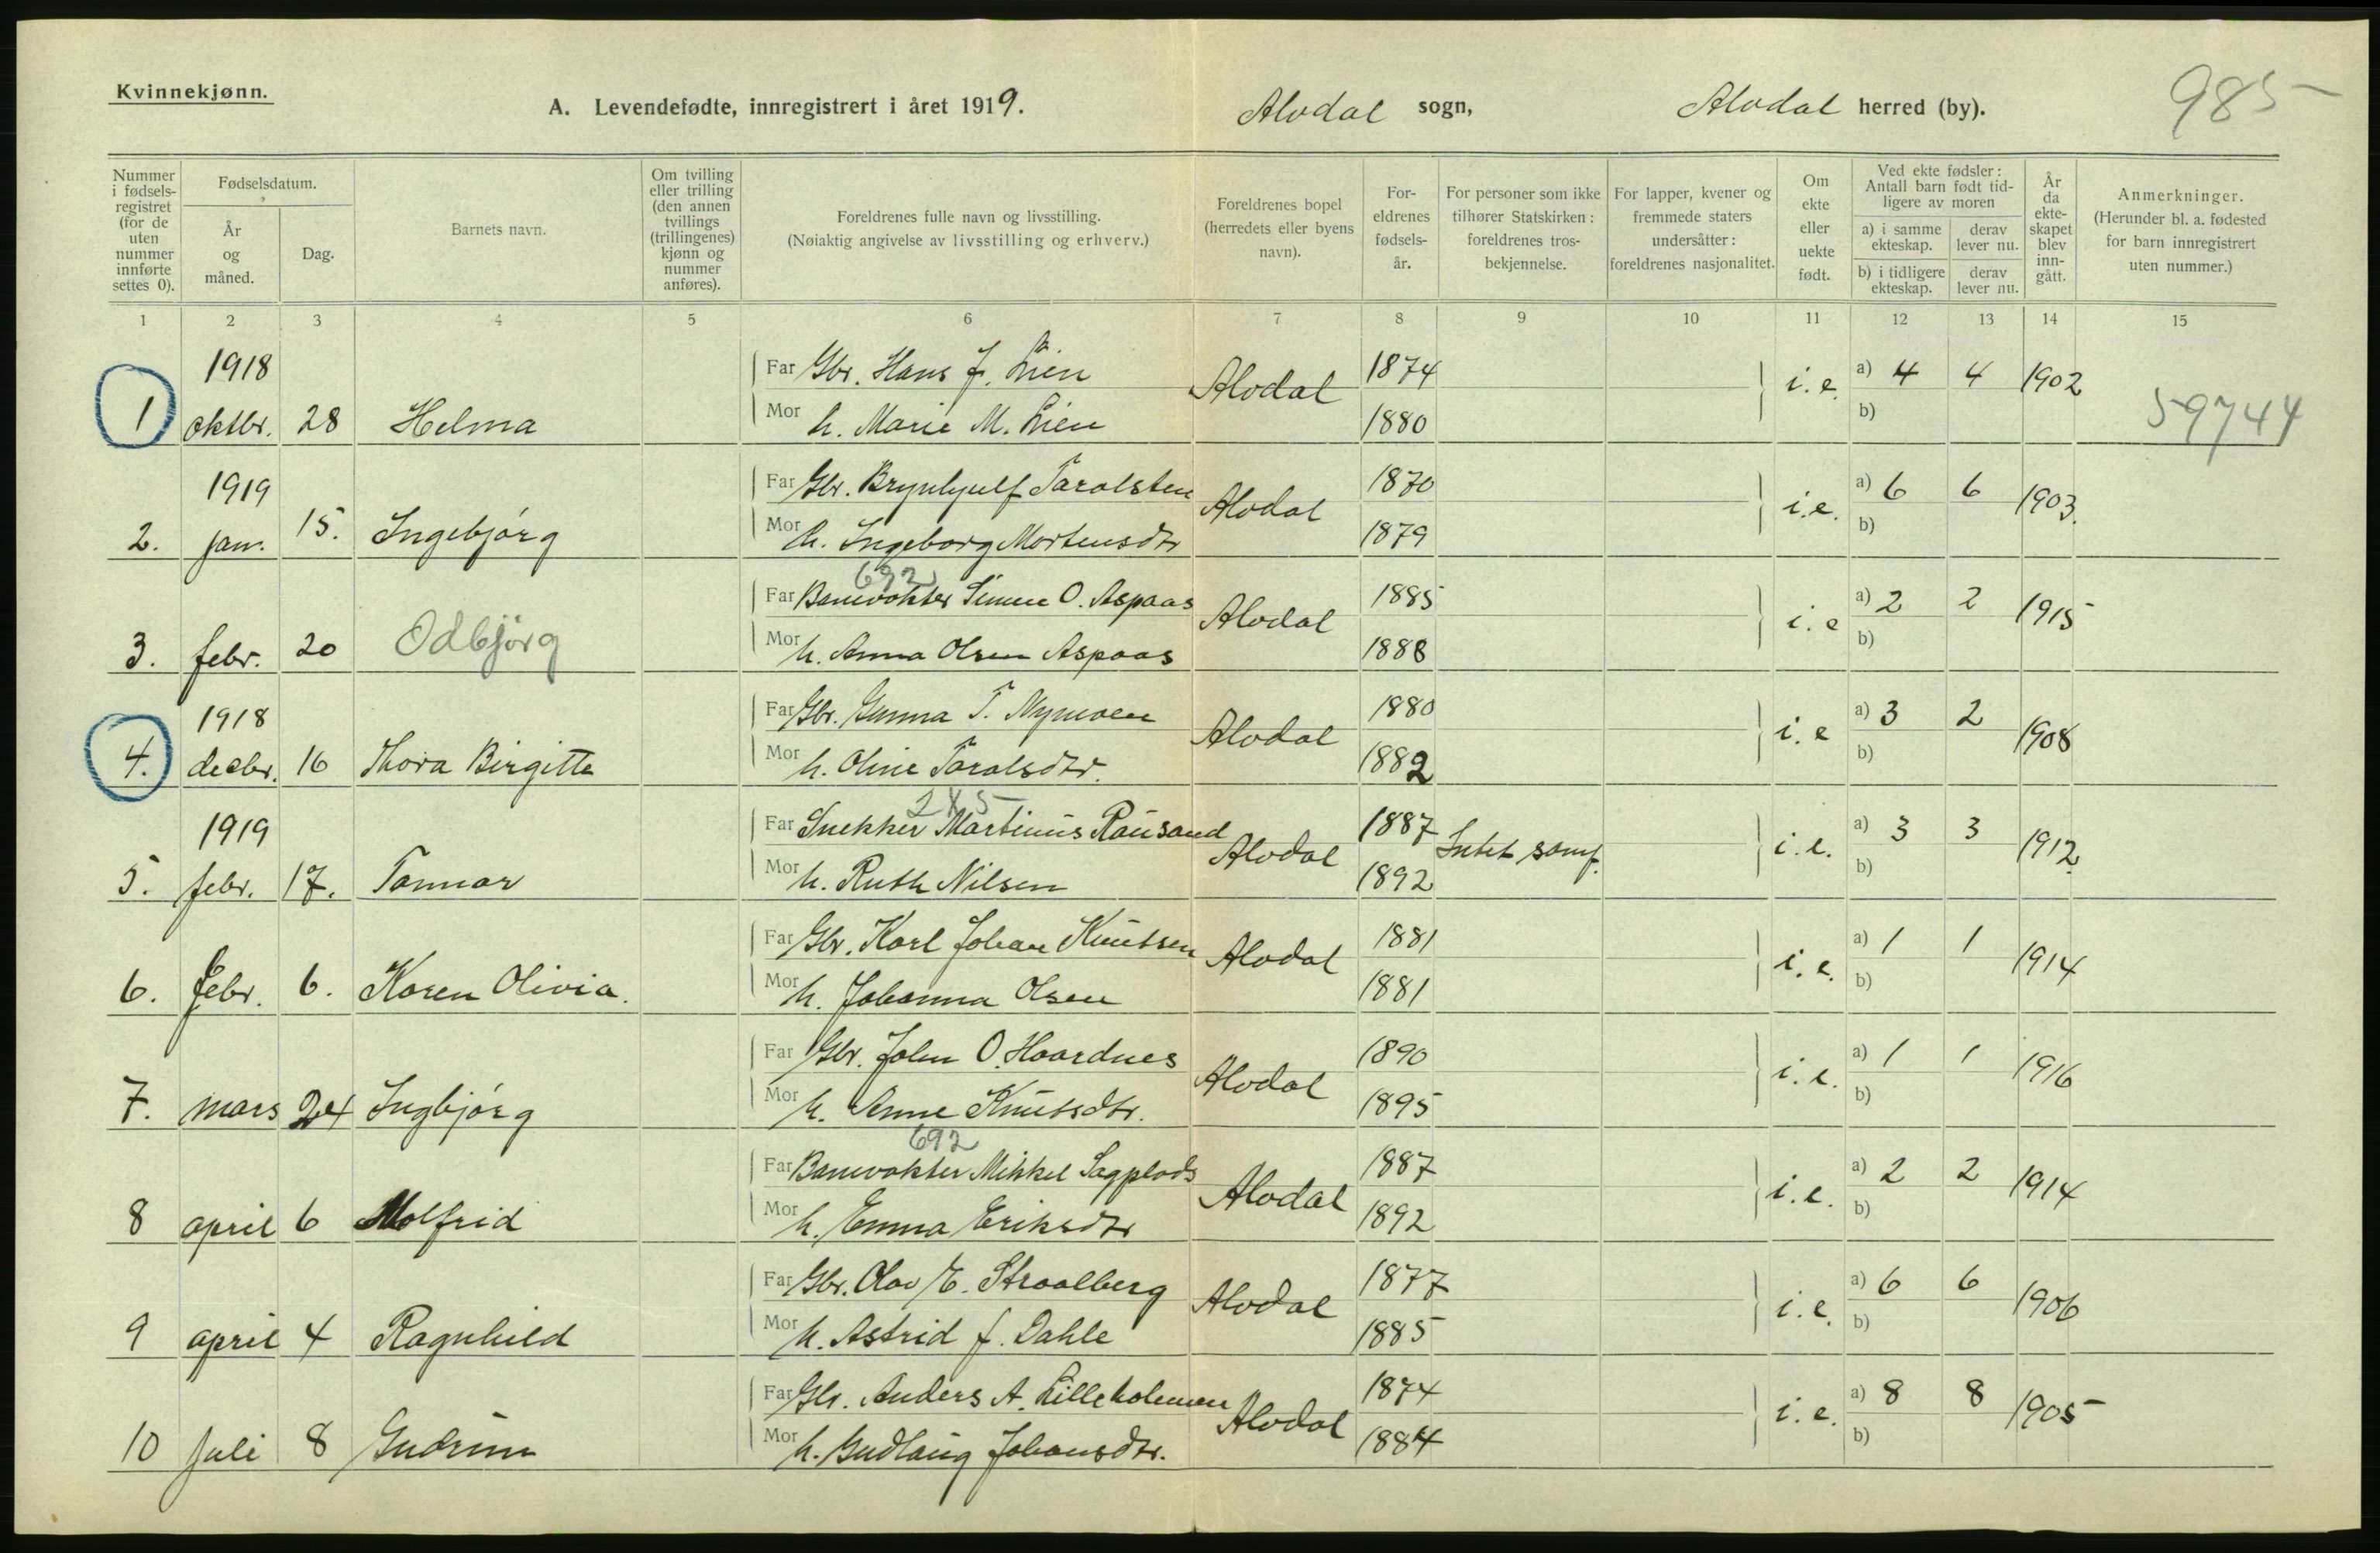 Kvinnekjønn.
A. Levendefødte, innregistrert i året 1919. Alvdal sogn, Alvdal herred (by). 985
Nummer i fødsels-registret (for de uten nummer innførte settes 0). Fødselsdatum. År og måned. Dag. Barnets navn. Om tvilling eller trilling (den annen tvillings (trillingenes) kjønn og nummer anføres). Foreldrenes fulle navn og livsstilling. (Nøiaktig angivelse av livsstilling og erhverv.) Foreldrenes bopel (herredets eller byens navn). For-eldrenes fødsels-år. For personer som ikke tilhører Statskirken: foreldrenes tros-bekjennelse. For lapper, kvener og fremmede staters undersåtter: foreldrenes nasjonalitet. Om ekte eller uekte født. Ved ekte fødsler: Antall barn født tid-ligere av moren a) i samme ekteskap. derav lever nu. b) i tidligere ekteskap. derav lever nu. År da ekte-skapet blev inn-gått. Anmerkninger. (Herunder bl. a. fødested for barn innregistrert uten nummer.)
1 2 3 4 5 6 7 8 9 10 11 12 13 14 15
1918 Far Gbr. Hans J. Lien Alvdal 1874 i. e. a) 4 4 1902
1 oktbr. 28 Helma Mor h. Marie M. Lien 1880 b) 59744
1919 Far Gbr. Brynhyulf Taralsten Alvdal 1870 i.e. a) 6 6 1903.
2. jan. 15. Ingebjörg Mor h. Ingeborg Mortensdtr 1879 b)
692
Far Banevokter Simen O. Aspaas Alvdal 1885 i. e a) 2 2 1915
3. febr. 20 Odbjörg Mor h. Anna Olsen Aspaas 1888 b)
1918 Far Gbr. Gunna T. Nymoen Alvdal 1880 i. e a) 3 2 1908
4. decbr. 16 Thora Birgitte Mor h. Oline Taralsdtr. 1882 b)
285
1919 Far Snekker Martinus Rausand Alvdal 1887 Intet samf. i. e. a) 3 3 1912.
5. febr. 17. Tannar Mor h. Ruth Nilsen 1892 b)
Far Gbr. Karl Johan Knutsen Alvdal 1881 i. e. a) 1 1 1914
6. febr. 6. Karen Olivia. Mor h. Johanna Olsen 1881 b)
Far Gbr. John O. Haardnes Alvdal 1890 i. e. a) 1 1 1916
7. mars 24 Ingbjörg Mor h. Anne Knutsdtr. 1895 b)
692
Far Banevokter Mikkel Sagplads Alvdal 1887 i. e. a) 2 2 1914
8 april 6 Molfrid Mor h. Emma Eriksdtr 1892 b)
Far Gbr. Olav E. Straalberg Alvdal 1877 i. e. a) 6 6 1906
9 april 4 Ragnhild Mor h. Astrid f. Dahle 1885 b)
Far Gbr. Anders A. Lilleholmen Alvdal 1874 i. e. a) 8 8 1905
10 juli 8 Gudrun Mor h. Gudlaug Johansdtr. 1884 b)